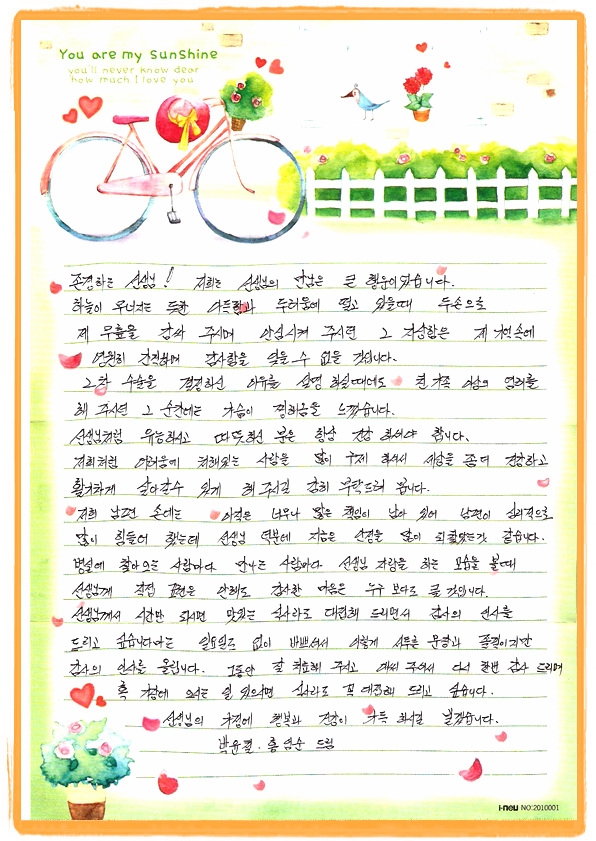 You are my sunshine
you'll never know dear
how much I love you
존경하는 선생님! 저희는 선생님의 만남은 큰 행운이었습니다.
하늘이 무너지는 듯한 아득함과 두려움에 떨고 있을때 두손으로
제 무릎을 감싸 주시며 안심시켜 주시던 그 자상함은 제 가슴속에
영원히 간직하며 감사함을 잊을 수 없을 것입니다.
그리고 수술을 결정하신 이유를 설명 하실때에도 친 가족 이상의 염려를
해 주시던 그 순간에는 가슴이 찡해옴을 느꼈습니다.
선생님처럼 유능하시고 따뜻하신 분은 항상 건강 하셔야 합니다.
저희처럼 어려움에 처해있는 사람을 많이 구제 하셔서 세상을 좀더 건강하고
활기차게 살아갈수 있게 해 주시길 감히 부탁드려 봅니다.
저희 남편 손에는 아직은 너무나 많은 책임이 남아 있어 남편이 심리적으로
많이 힘들어 했는데 선생님 덕분에 지금은 안정을 많이 되찾았는것 같습니다.
병실에 찾아오는 사람마다 만나는 사람마다 선생님 자랑을 하는 모습을 볼때
선생님께 직접 표현은 안해도 감사한 마음은 누구 보다도 클 것입니다.
선생님께서 시간만 되시면 맛있는 식사라도 대접해 드리면서 감사의 인사를
드리고 싶습니다마는 일요일도 없이 바쁘셔서 이렇게 서투른 문장과 졸필이지만
감사의 인사를 올립니다. 그동안 잘 치료해 주시고 애써 주셔서 다시 한번 감사 드리며
혹 거창에 오시는 일 있으시면 식사라도 꼭 대접해 드리고 싶습니다.
선생님의 가정에 행복과 건강이 가득 하시길 빌겠습니다.
박윤결. 홍영순 드림
i-neu NO:2010001